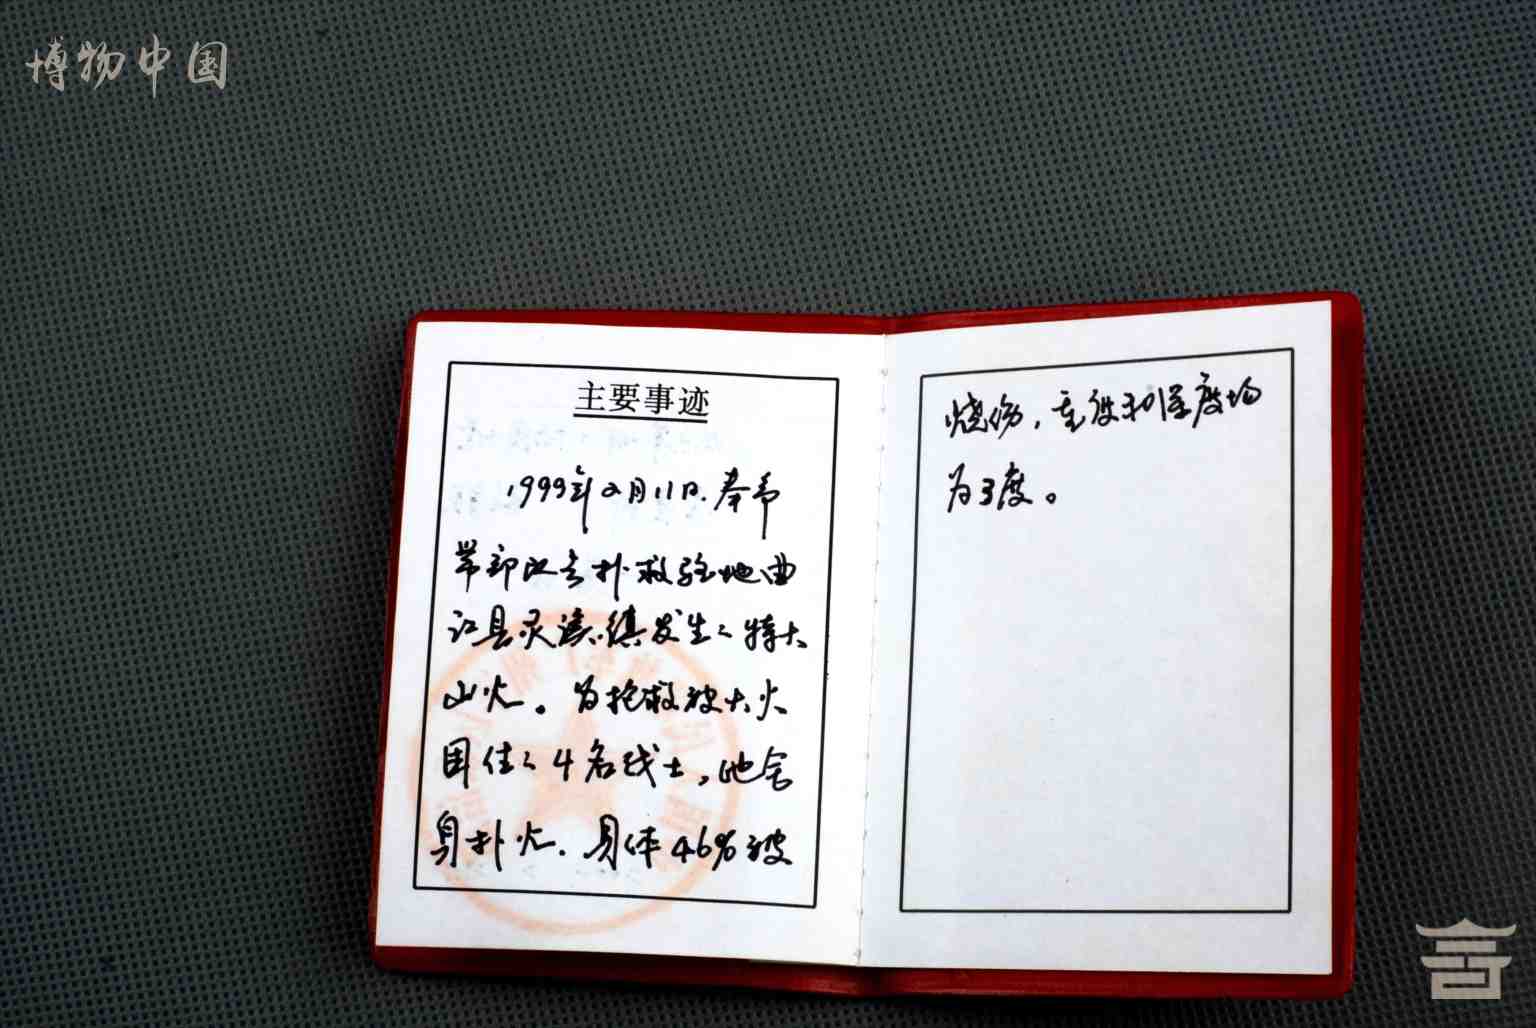 博物中国
主要事迹
1999年2月11日.奉命
带部队去扑救驻地曲
江县灵溪镇发生的特大
山火。为抢救被大火
围住的4名战士,他舍
身扑火.身体46%被
烧伤,重度和深度均
为3度。